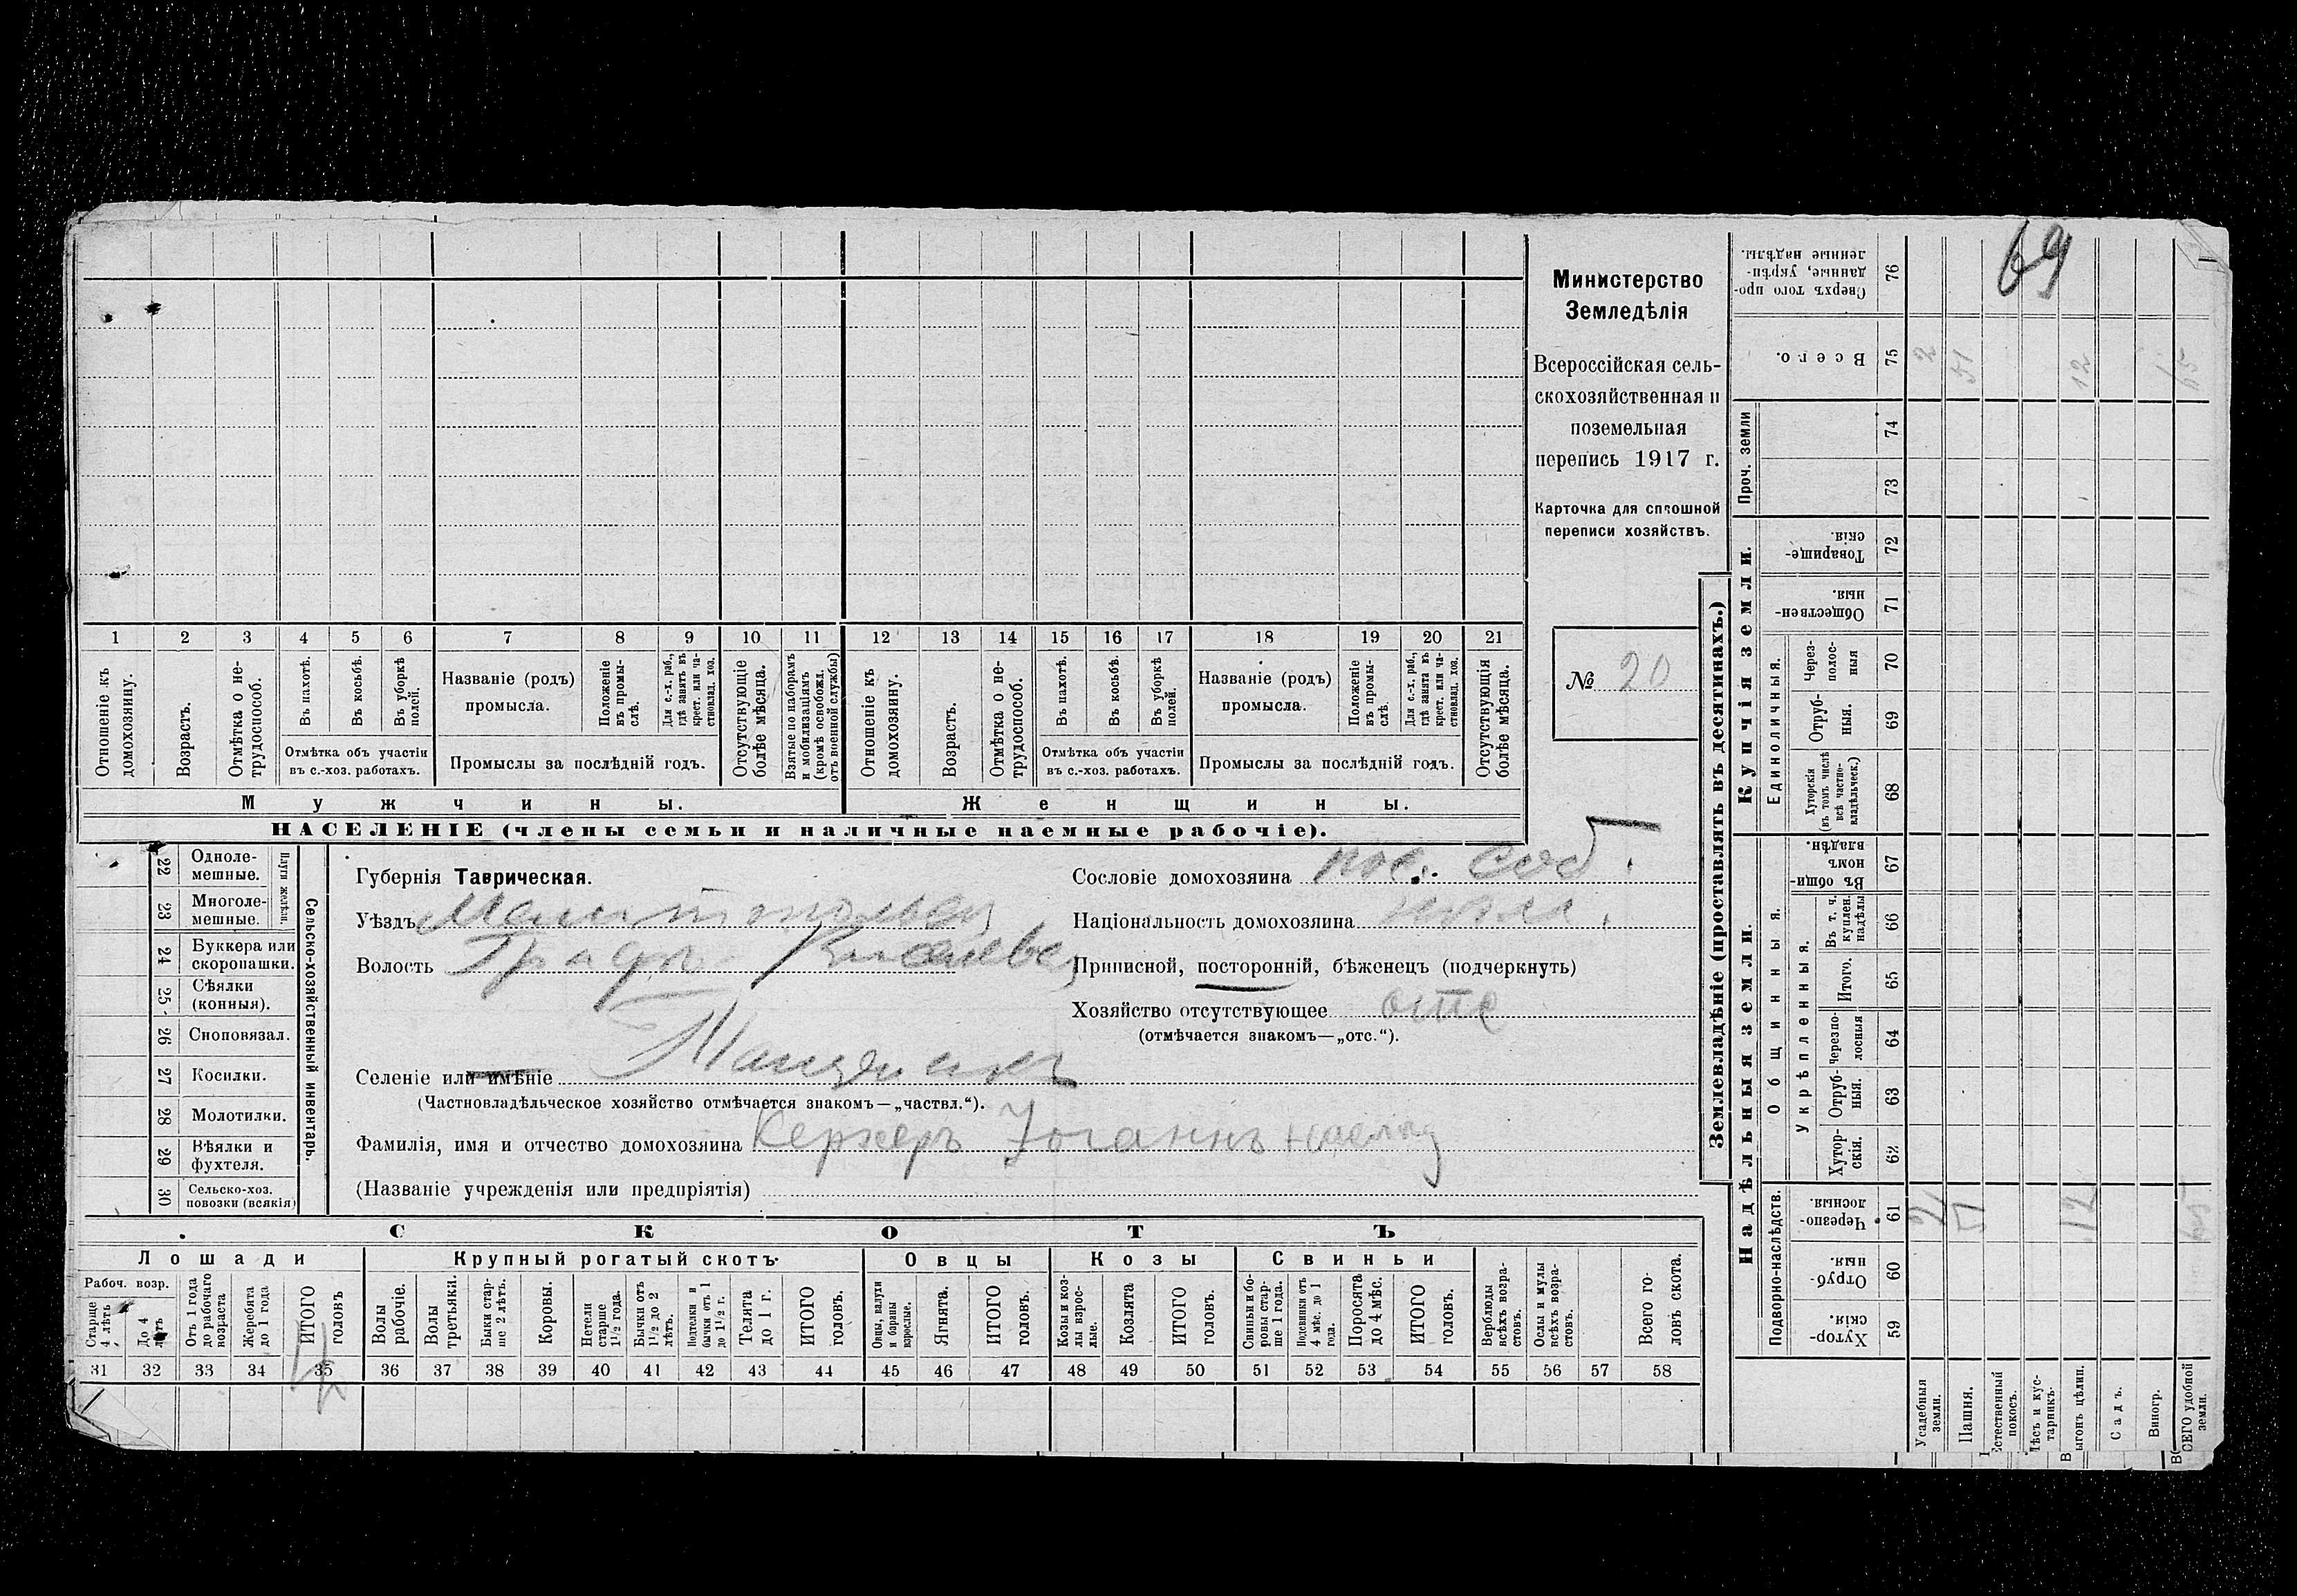 69
Министерство
Земледѣлія
Всероссійская сель-
скохозяйственная и
поземельная
перепись 1917 г.
Карточка для сплошной
переписи хозяйствъ.
№ 20
1 2 3 4 5 6 7 8 9 10 11 12 13 14 15 16 17 18 19 20 21
Отношеніе къ домохозяину.
Возрастъ.
Отмѣтка о не-
трудоспособ.
Въ пахотѣ.
Въ косьбѣ.
Въ уборкѣ полей.
Отмѣтка объ участіи
въ с.-хоз. работахъ.
Названіе (родъ)
промысла.
Положеніе въ промы-
слѣ.
Для с.-х. раб., гдѣ занятъ въ крест. или ча-
стновлад. хоз.
Промыслы за послѣдній годъ.
Отсутствующіе болѣе мѣсяца.
Взятые по наборамъ и мобилизаціямъ (кромѣ освобожд. отъ военной службы)
Отношеніе къ домохозяину.
Возрастъ.
Отмѣтка о не-
трудоспособ.
Въ пахотѣ.
Въ косьбѣ.
Въ уборкѣ полей.
Отмѣтка объ участіи
въ с.-хоз. работахъ.
Названіе (родъ)
промысла.
Положеніе въ промы-
слѣ.
Для с.-х. раб., гдѣ занята въ крест. или ча-
стновлад. хоз.
Промыслы за послѣдній годъ.
Отсутствующія болѣе мѣсяца.
Мужчины. Женщины.
НАСЕЛЕНІЕ (члены семьи и наличные наемные рабочіе).
Сельско-хозяйственный инвентарь.
22 Одноле-
мешные.
23 Многоле-
мешные.
24 Буккера или
скоропашки.
25 Сѣялки
(конныя).
26 Сноповязал.
27 Косилки.
28 Молотилки.
29 Вѣялки и
фухтеля.
30 Сельско-хоз.
повозки (всякія)
Губернія Таврическая.
Уѣздъ
Волость
Селеніе или имѣніе
(Частновладѣльческое хозяйство отмѣчается знакомъ—„частвл.“).
Фамилія, имя и отчество домохозяина Керхеръ Іоганнъ
(Названіе учрежденія или предпріятія)
Сословіе домохозяина пос. соб.
Національность домохозяина
Приписной, посторонній, бѣженецъ (подчеркнуть)
Хозяйство отсутствующее отс
(отмѣчается знакомъ—„отс.“).
СКОТЪ
Лошади Крупный рогатый скотъ Овцы Козы Свиньи
Рабоч. возр.
Старше 4 лѣтъ
До 4 лѣтъ
Отъ 1 года до рабочаго возраста
Жеребята до 1 года
ИТОГО головъ
Волы рабочіе.
Волы третьяки.
Быки стар-
ше 2 лѣтъ.
Коровы.
Нетели старше 1½ года.
Бычки отъ 1½ до 2 лѣтъ.
Подтелки и бычки отъ 1 до 1½ г.
Телята до 1 г.
ИТОГО головъ.
Овцы, валухи и бараны взрослые.
Ягнята.
ИТОГО головъ.
Козы и коз-
лы взрос-
лые.
Козлята
ИТОГО головъ.
Свиньи и бо-
ровы стар-
ше 1 года.
Подсвинки отъ 4 мѣс. до 1 года.
Поросята до 4 мѣс.
ИТОГО головъ.
Верблюды всѣхъ возра-
стовъ.
Ослы и мулы всѣхъ возра-
стовъ.
Всего го-
ловъ скота.
31 32 33 34 35 36 37 38 39 40 41 42 43 44 45 46 47 48 49 50 51 52 53 54 55 56 57 58
Землевладѣніе (проставлять въ десятинахъ.)
Надѣльныя земли. Купчія земли.
Проч. земли
Подворно-наслѣдств.
Общинныя.
Укрѣпленныя.
Единоличныя.
Сверхъ того про-
данные, укрѣп-
ленные надѣлы. 76
Всего. 75 2 51 12 65
74
73
Товарище-
скія. 72
Обществен-
ныя. 71
Через-
полос-
ныя 70
Отруб-
ныя. 69
Хуторскія (въ томъ числѣ всѣ частно-
владѣльческ.) 68
Въ общи-
номъ владѣн. 67
Въ т. ч. куплен. надѣлы 66
Итого. 65
Черезпо-
лосныя 64
Отруб-
ныя. 63
Хутор-
скія. 62
Черезпо-
лосныя. 61 2 51 12 65
Отруб-
ныя. 60
Хутор-
скія. 59
Усадебныя земли.
Пашня.
Естественный покосъ.
Лѣсъ и кус-
тарникъ.
Выгонъ цѣлин.
Садъ.
Виногр.
ВСЕГО удобной земли.